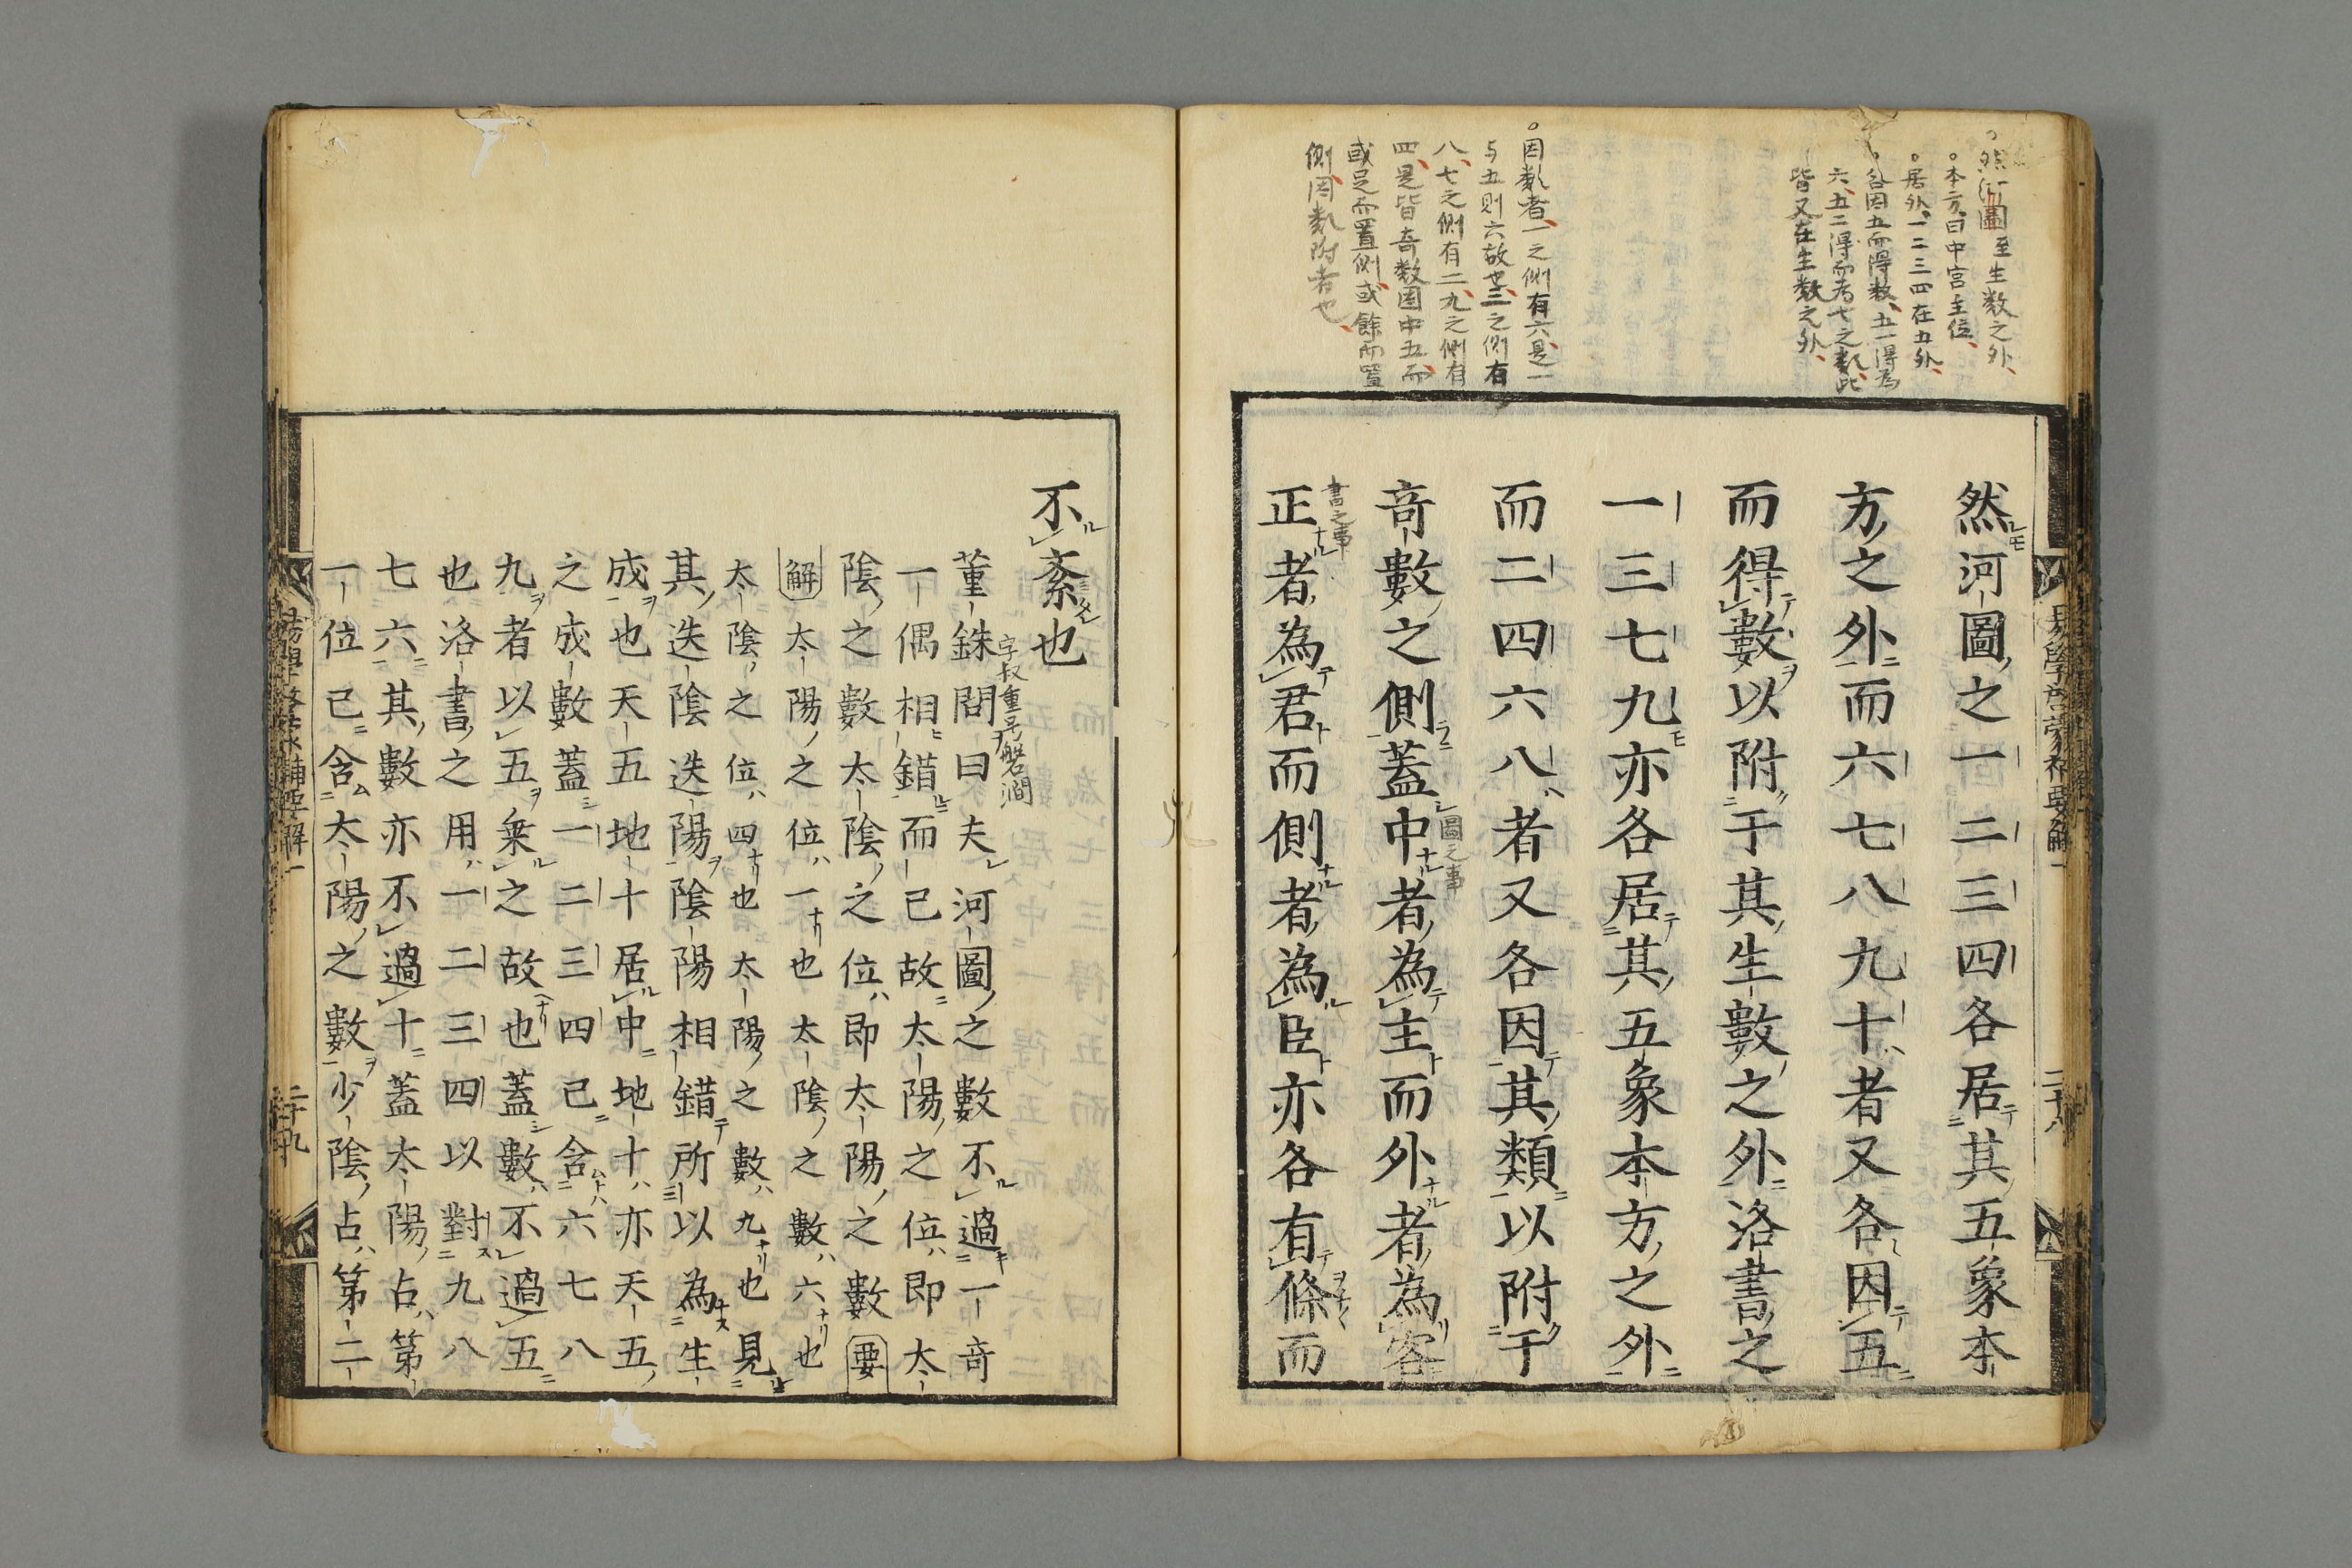 然河圖之一二三四各居其五象本
方之外而六七八九十者又各因五
而得數以附于其生數之外洛書之
一三七九亦各居其五象本方之外
而二四六八者又各因其類以附于
竒數之側蓋中者為主而外者為客
正者為君而側者為臣亦各有條而
圖之事
書之事
然河圖至生數之外
本方曰中宮主位
居外一二三四在五外
各因五而得数五一得為
六五二得而為七之数此
皆又在生数之外
因数者一之側有六是一
与五则六故也三之側有
八七之側有二九之側有
四是皆奇数因中五而
或足而置側或餘而置
側因数附者也
易學啓蒙補要解一
二十八
不紊也
董銖問曰夫河圖之數不過一竒
字叔重号磐澗
一偶相錯而已故太陽之位即太
陰之數太陰之位即太陽之數要
解太陽之位一也太陰之數六也
太陰之位四也太陽之數九也見
其迭陰迭陽陰陽相錯所以為生
成也天五地十居中地十亦天五
之成數蓋一二三四已含六七八
九者以五乗之故也蓋數不過五
也洛書之用一二三四以對九八
七六其數亦不過十蓋太陽占第
一位已含太陽之數少陰占第二
易學啓蒙補要解一
二十九